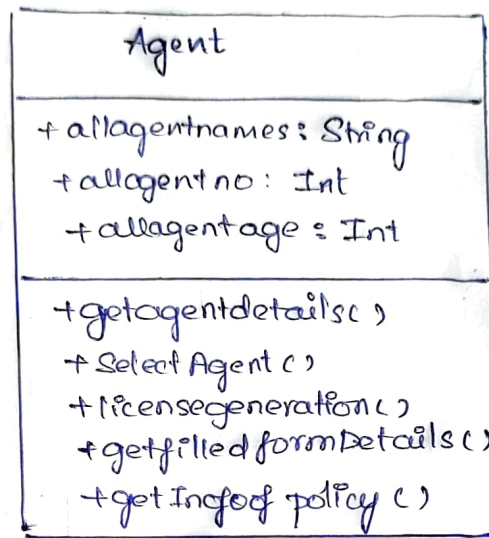 Agent
+ allagentnames: String
+ allagent no: Int
+ allagentage: Int
+getagentdetails()
+ Select Agent ()
+ licensegeneration()
+getfilled formDetails()
+get Infoof policy ()